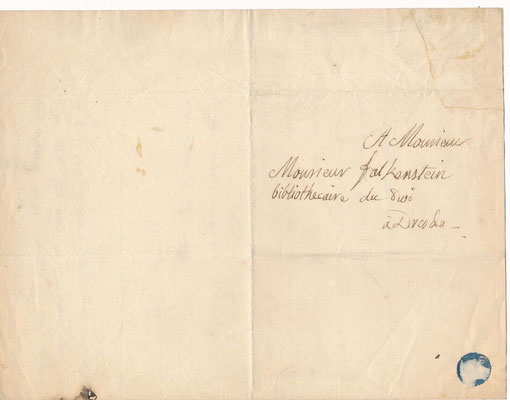 A Monsieur
Monsieur Falkenstein
bibliothecaire du Roi
à Dresde